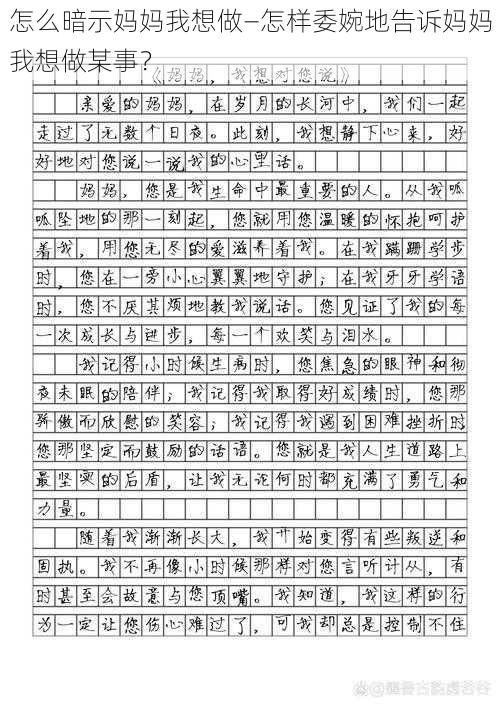 怎么暗示妈妈我想做—怎样委婉地告诉妈妈
我想做某事？
《妈妈，我想对您说》
亲爱的妈妈，在岁月的长河中，我们一起
走过了无数个日夜。此刻，我想静下心来，好
好地对您说一说我的心里话。
妈妈，您是我生命中最重要的人。从我呱
呱坠地的那一刻起，您就用您温暖的怀抱呵护
着我，用您无尽的爱滋养着我。在我蹒跚学步
时，您在一旁小心翼翼地守护；在我牙牙学语
时，您不厌其烦地教我说话。您见证了我的每
一次成长与进步，每一个欢笑与泪水。
我记得小时候生病时，您焦急的眼神和彻
夜未眠的陪伴；我记得我取得好成绩时，您那
骄傲而欣慰的笑容；我记得我遇到困难挫折时
您那坚定而鼓励的话语。您就是我人生道路上
最坚实的后盾，让我无论何时都充满了勇气和
力量。
随着我渐渐长大，我开始变得有些叛逆和
固执。我不再像小时候那样对您言听计从，有
时甚至会故意与您顶嘴。我知道，我这样的行
为一定让您伤心难过了，可我却总是控制不住